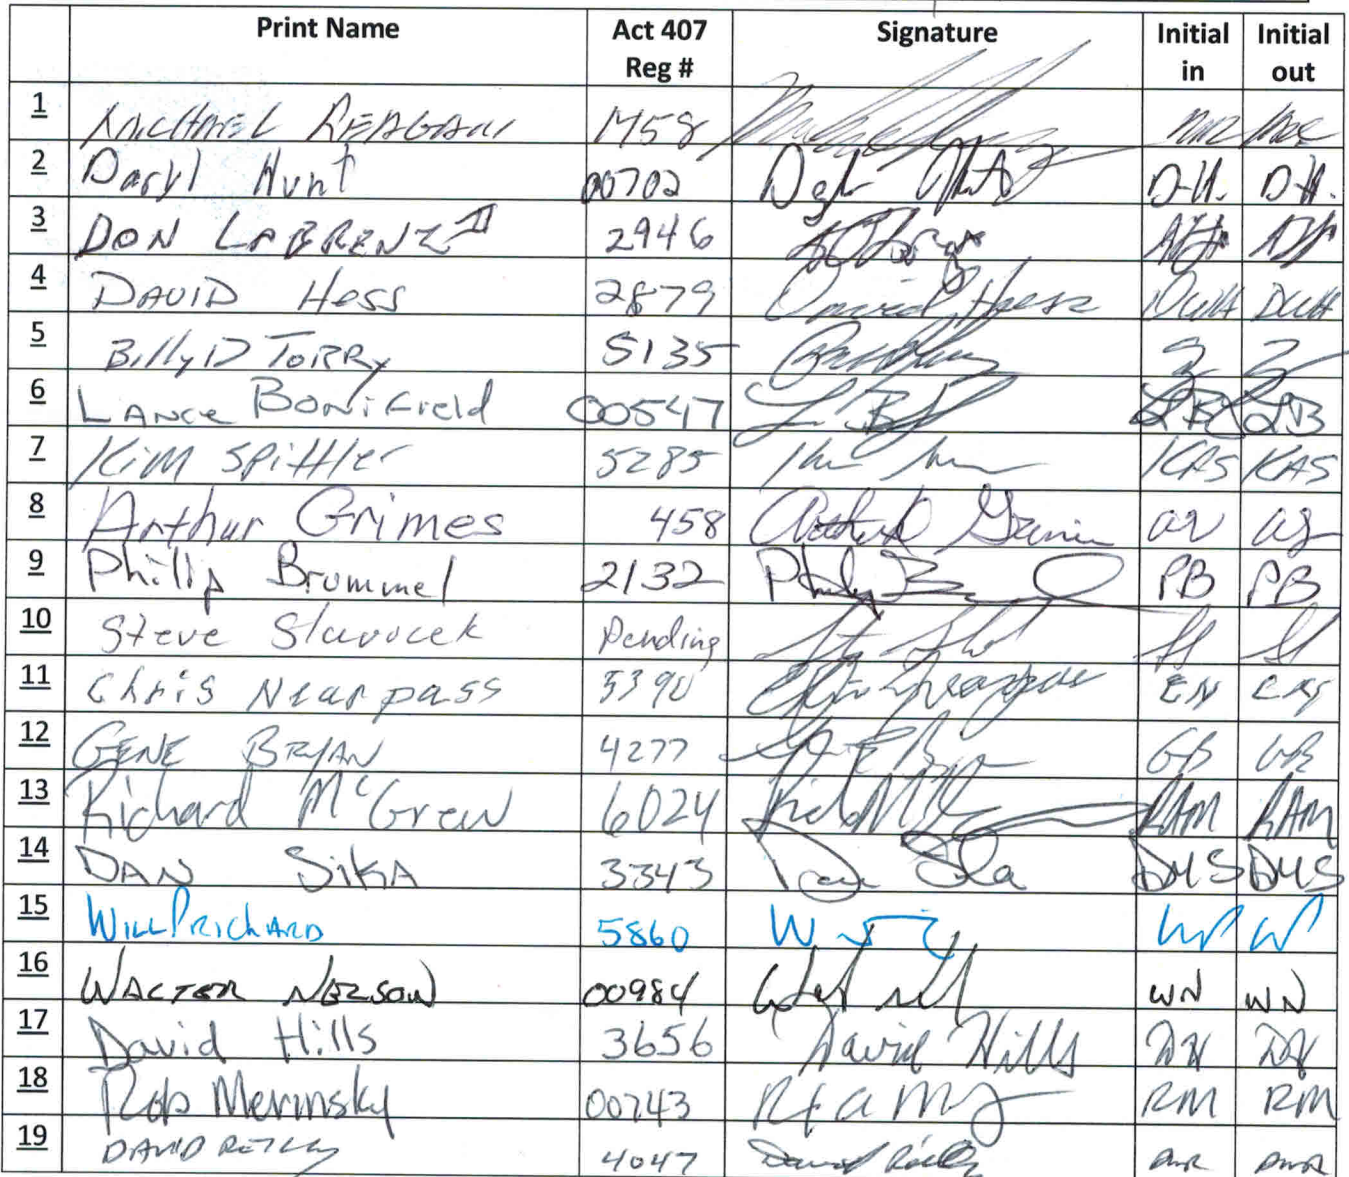 Print Name Act 407 Reg # Signature Initial in Initial out
1 MICHAEL REAGAN 1458
2 Daryl Hunt 00702 D.H. D.H.
3 DON LABRENZ II 2946
4 DAVID Hess 2879 David Hess DWH DWH
5 Billy D TORRY 5135
6 LANCE BONiField 00547 LB LB
7 Kim Spittler 5285 KAS KAS
8 Arthur Grimes 458 ag
9 Phillip Brummel 2132 PB PB
10 Steve Slavicek Pending
11 Chris Nearpass 5390
12 GENE BRYAN 4277 GB GB
13 Richard McGrew 6024 RAM RAM
14 DAN SiKA 3343 DMS DMS
15 WILL PRICHARD 5860 WP WP
16 WALTER NELSON 00984 WN WN
17 David Hills 3656 David Hills DH DH
18 Rob Merinsky 00743 RM RM
19 DAVID REILLY 4047 David Reilly DWR DWR